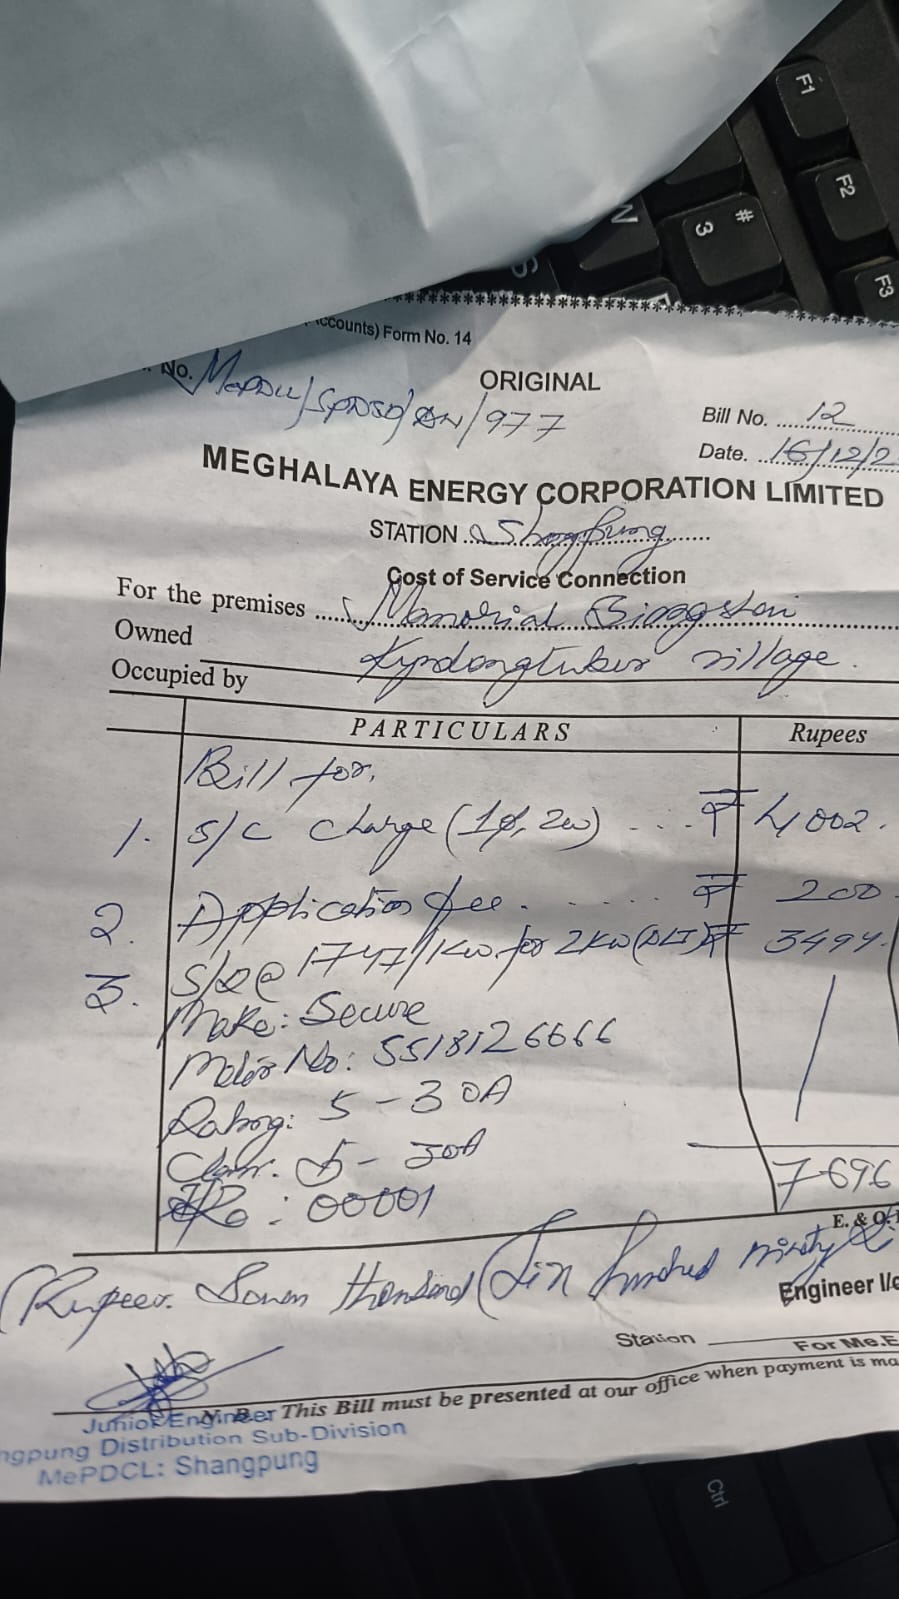 F1
F2
F3
# 3
W
S
ccounts) Form No. 14
No. MePDCL/SPDSD/ /977
ORIGINAL
Bill No. 12
Date. 16/12/2
MEGHALAYA ENERGY CORPORATION LIMITED
STATION Shangpung
Cost of Service Connection
For the premises Memorial
Owned
Occupied by village.
PARTICULARS Rupees
Bill for,
1. S/C charge (1φ, 2w) .... ₹ 4002.
2. Application fee. ...... ₹ 200
3. S/D @ 1747/1kw for 2kw (DLT) ₹ 3494.
Make: Secure
Meter No: 5518126666
Rating: 5-30A
5-30A
: 00001
7696
E. & O.
(Rupees. Seven thousand Six hundred ninety
Engineer I/c
Station
For Me.E
N. B. This Bill must be presented at our office when payment is ma
Junior Engineer
ngpung Distribution Sub-Division
MePDCL: Shangpung
Ctrl